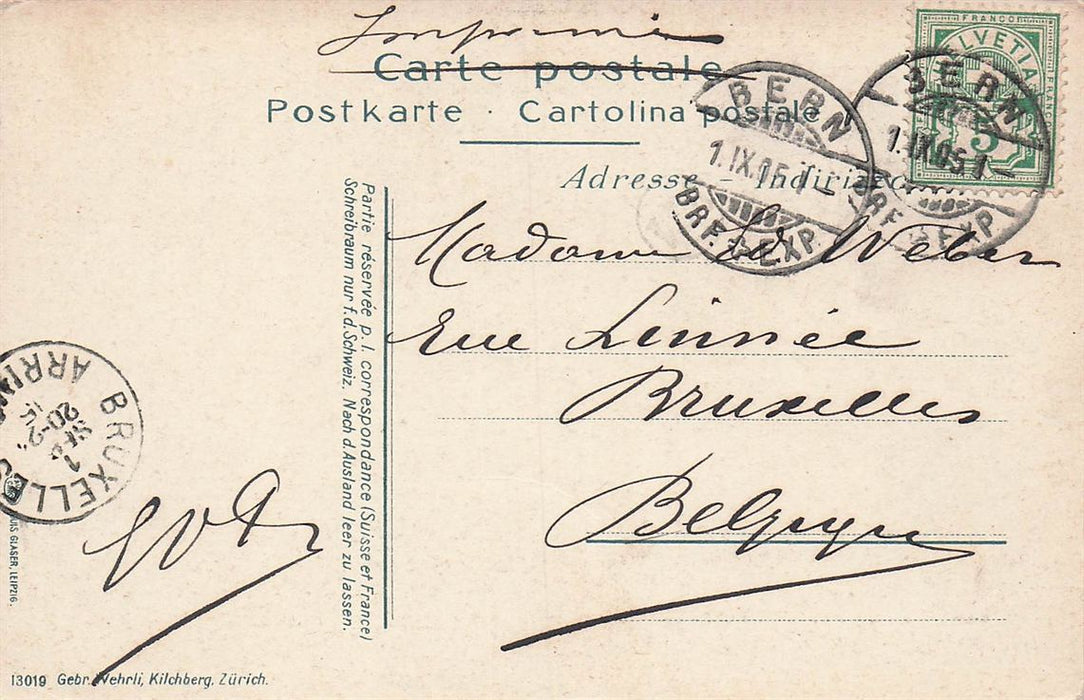 Imprimé
Carte postale
Postkarte · Cartolina postale
Adresse – Indirizzo
FRANCO
HELVETIA
5
BERN
1.IX.05.1–
BRF. EXP.
BERN
1.IX.05.1–
BRF. EXP.
Madame de Weber
Rue Linnée
Bruxelles
Belgique
Partie réservée p. l. correspondance (Suisse et France)
Schreibraum nur f. d. Schweiz. Nach d. Ausland leer zu lassen.
BRUXELLES
1
SEPT
20-2
ARRIV
GLASER, LEIPZIG.
13019 Gebr. Wehrli, Kilchberg, Zürich.